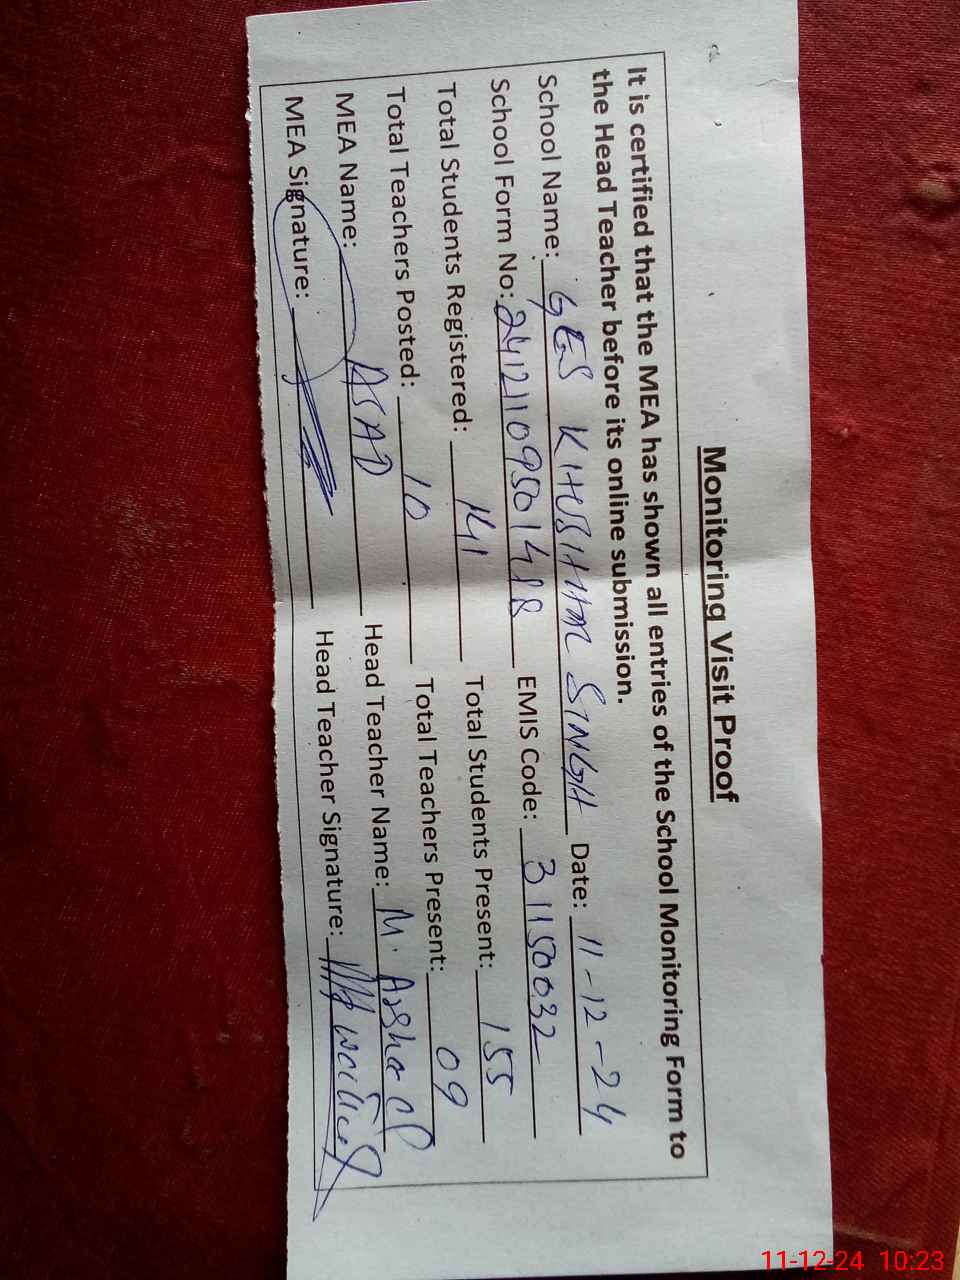 Monitoring Visit Proof
It is certified that the MEA has shown all entries of the School Monitoring Form to
the Head Teacher before its online submission.
School Name: GES KHUSHHM SINGH Date: 11-12-24
School Form No: EMIS Code: 31150032
Total Students Registered: Total Students Present: 155
Total Teachers Posted: 10 Total Teachers Present: 09
MEA Name: ASAD Head Teacher Name: M.
MEA Signature: Head Teacher Signature:
11-12-24 10:23